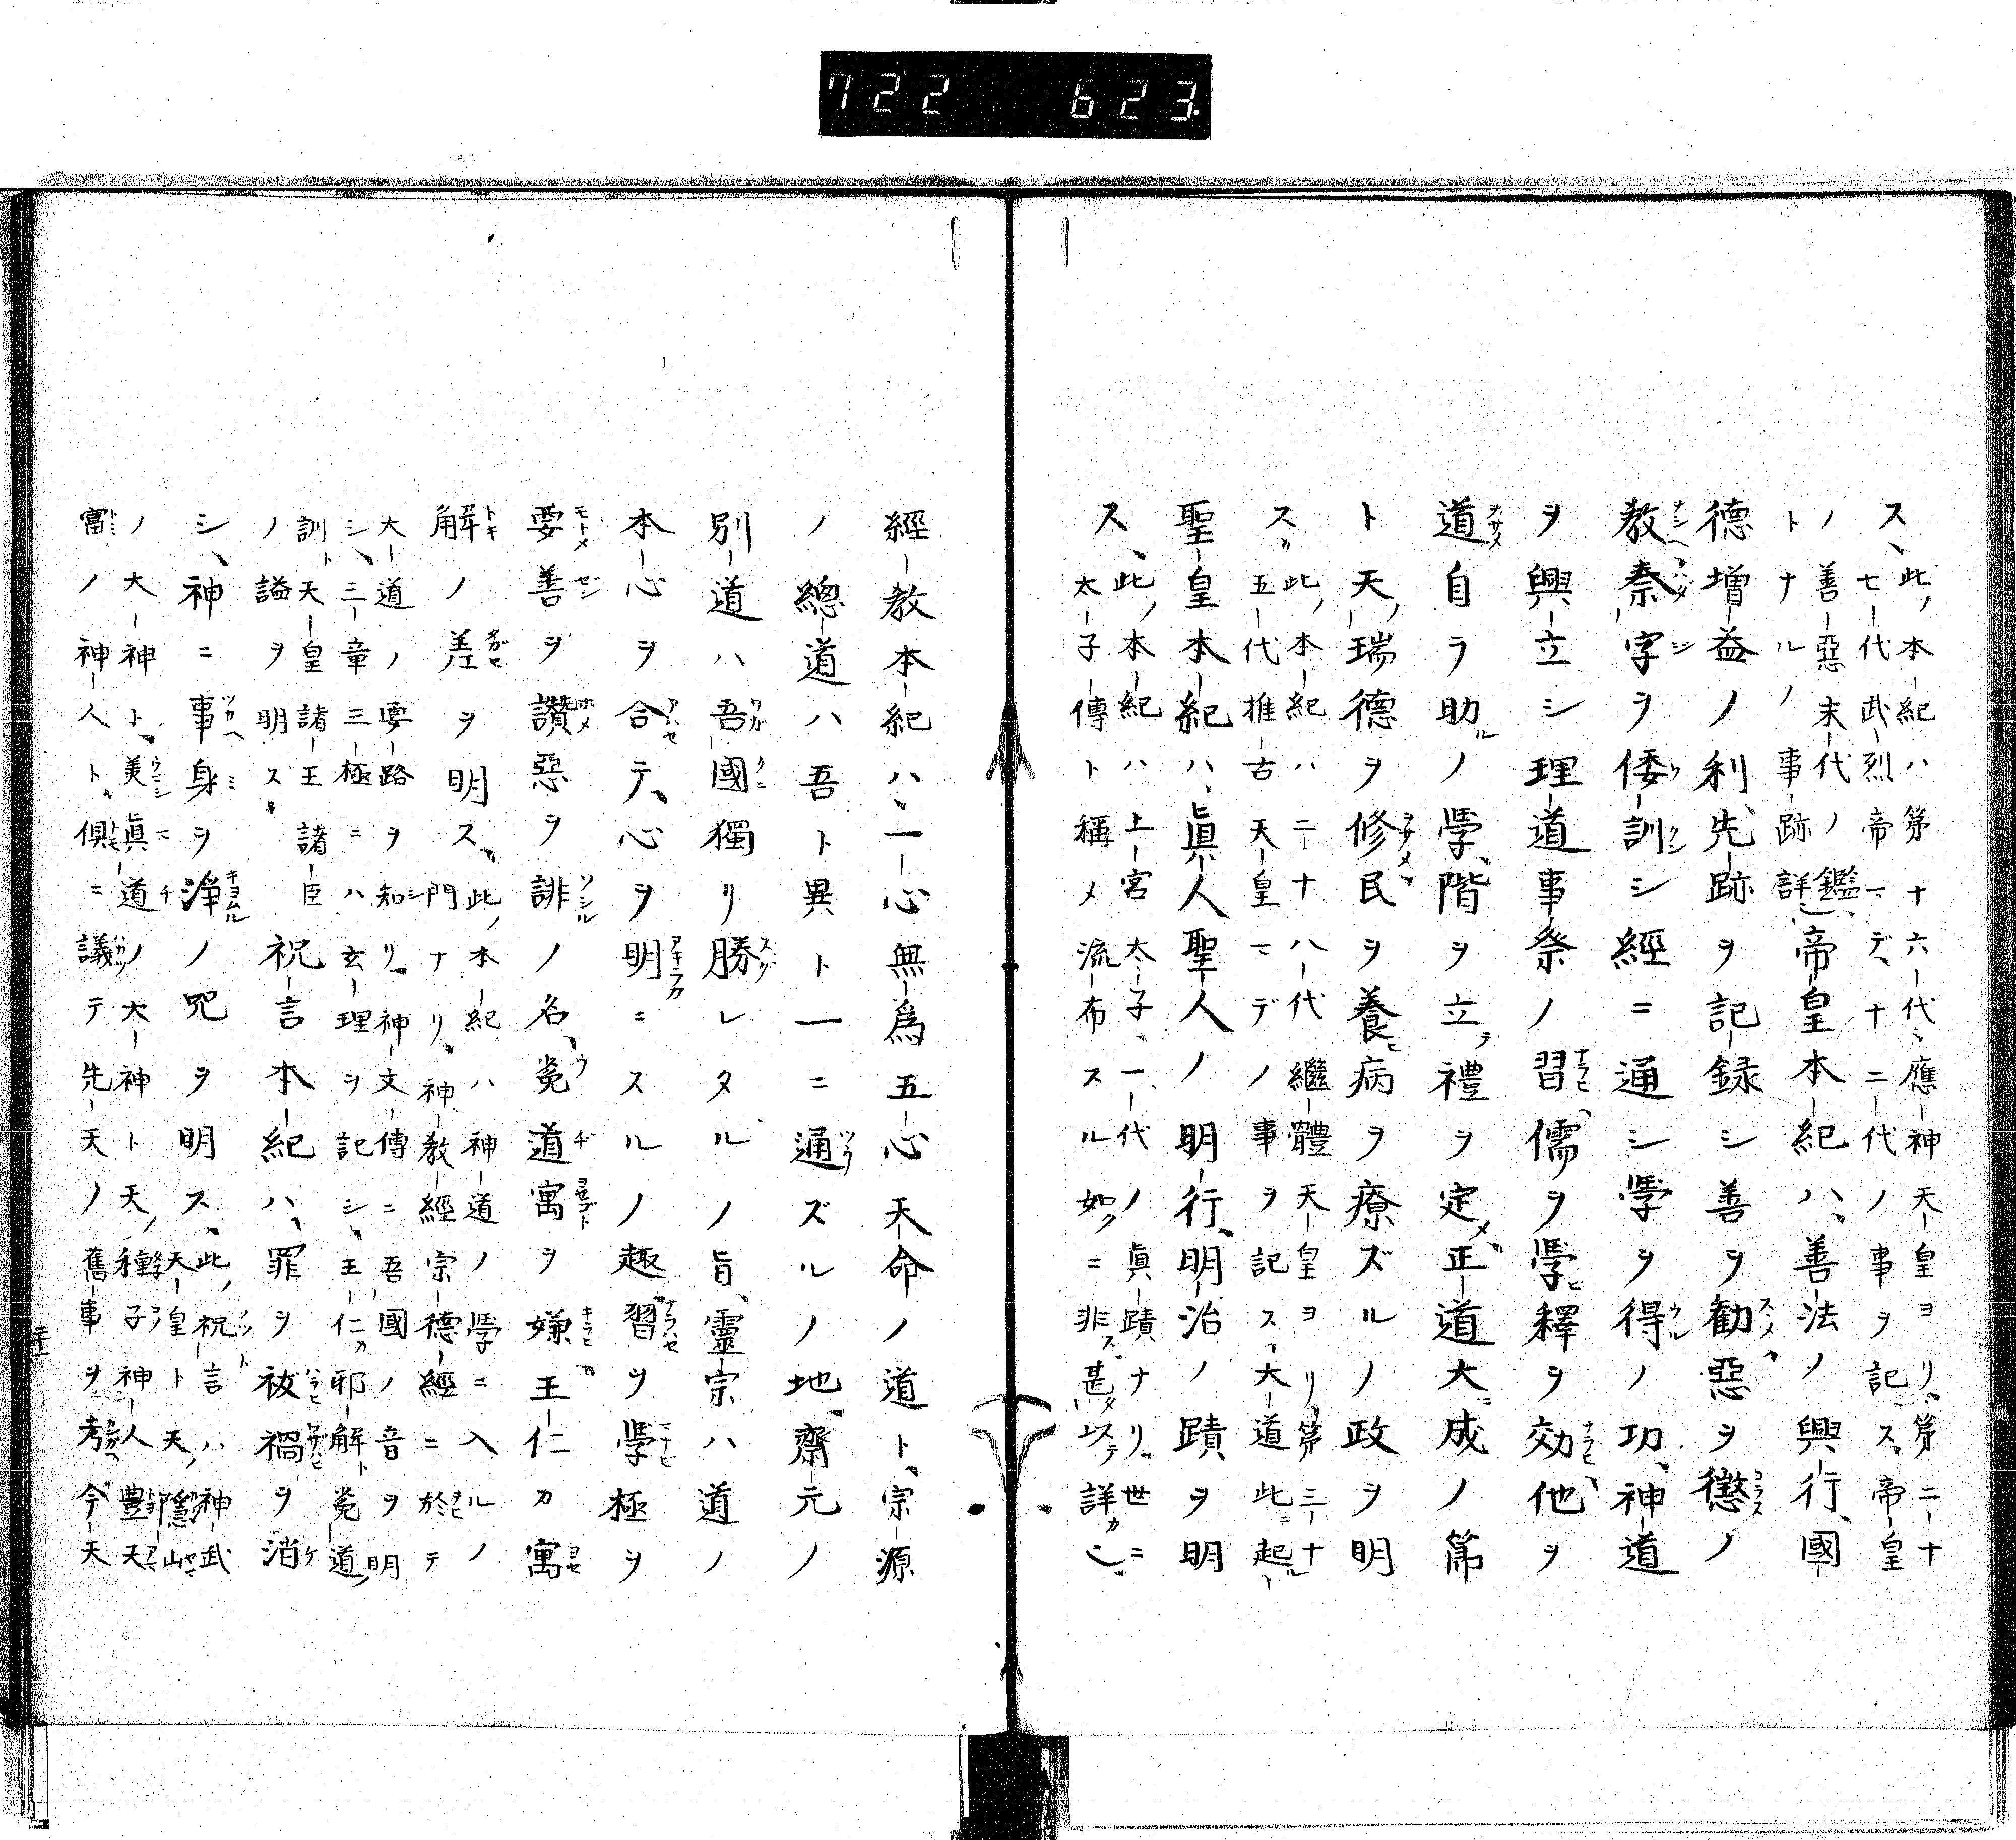 722 623
ス、此ノ本紀ハ第十六代、應神天皇ヨリ、第二十
七代武烈帝マデ、十二代ノ事ヲ記ス、帝皇
ノ善惡末代ノ鑑、帝皇本紀ハ、善法ノ興行、國
トナルノ事跡詳ニ
德増益ノ利、先跡ヲ記録シ善ヲ勸惡ヲ懲ノ
教、秦字ヲ倭訓シ經ニ通シ學ヲ得ノ功、神道
ヲ興立シ理道事祭ノ習、儒ヲ學釋ヲ効、他ヲ
道自ラ助ルノ學、階ヲ立テ禮ヲ定メ、正道大ニ成ノ第
ト天ノ瑞德ヲ修、民ヲ養ヒ病ヲ療ズルノ政ヲ明
ス、此ノ本紀ハ二十八代繼體天皇ヨリ、第三十
五代推古天皇マデノ事ヲ記ス、大道此ニ起ル
聖皇本紀ハ、眞人聖人ノ明行、明治ノ蹟ヲ明
ス、此ノ本紀ハ上宮太子、一代ノ眞蹟ナリ、世ニ
太子傳ト稱メ流布スル如クニ非ス、甚タ以テ詳カニ
經教本紀ハ、一心無爲五心天命ノ道ト、宗源
ノ總道ハ吾ト異ト一ニ通ズルノ地、齋元ノ
別道ハ吾國獨リ勝レタルノ旨、靈宗ハ道ノ
本心ヲ合テ、心ヲ明ニスルノ趣習ヲ學極ヲ
要善ヲ讚惡ヲ誹ノ名、寃道寓ヲ嫌王仁カ寓
解ノ差ヲ明ス、此ノ本紀ハ神道ノ學ニ入ルノ
門ナリ、神教經宗德經ニ於テ
大道ノ要路ヲ知リ、神文傳ニ吾國ノ音ヲ明
シ、三章三極ニハ玄理ヲ記シ、王仁カ耶解ト寃道ノ
訓ト天皇諸王諸臣
ノ謚ヲ明ス 祝言本紀ハ、罪ヲ祓禍ヲ消
シ、神ニ事身ヲ淨ノ咒ヲ明ス、此ノ祝言ハ、神武
天皇ト天ノ隱山
ノ大神ト、美眞道ノ大神ト天ノ種子神人豊天
富ノ神人ト、俱ニ議テ先天ノ舊事ヲ考今天